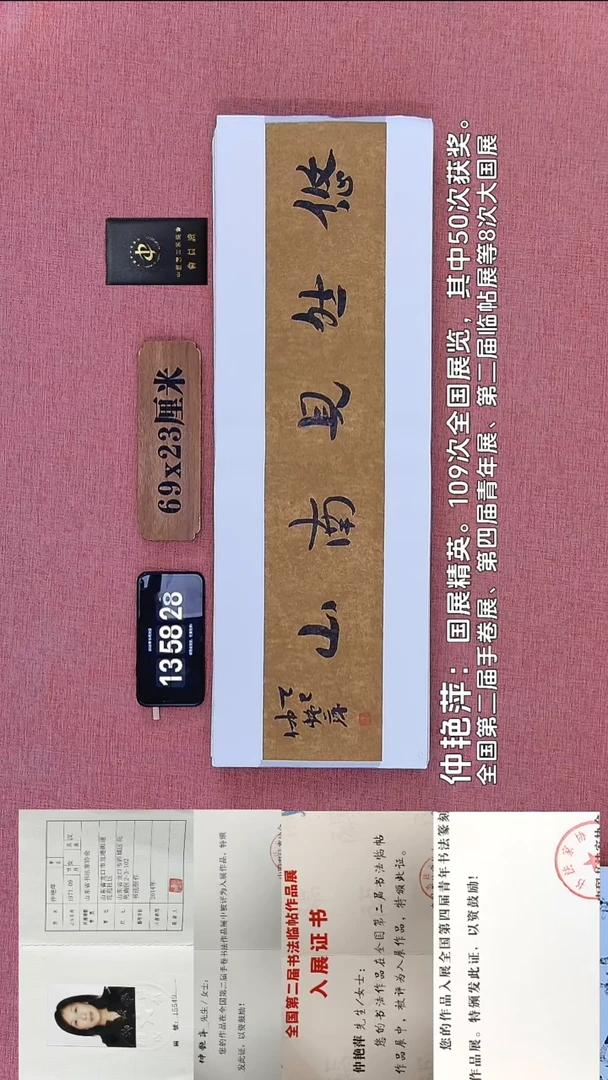 悠然見南山
乙巳
仲艳萍
会员证
69x23厘米
13 58 28
仲艳萍：国展精英。109次全国展览，其中50次获奖。
全国第二届手卷展、第四届青年展、第二届临帖展等8次大国展
1971.09
山东省书法家协会
2014年
先生/女士：
您的作品在全国第二届手卷书法作品展中被评为入展作品，特颁
发此证，以资鼓励！
全国第二届书法临帖作品展
入展证书
仲艳萍 先生/女士：
您的书法作品在全国第二届书法临帖
作品展中，被评为入展作品，特颁此证。
您的作品入展全国第四届青年书法篆刻
作品展。特颁发此证，以资鼓励！